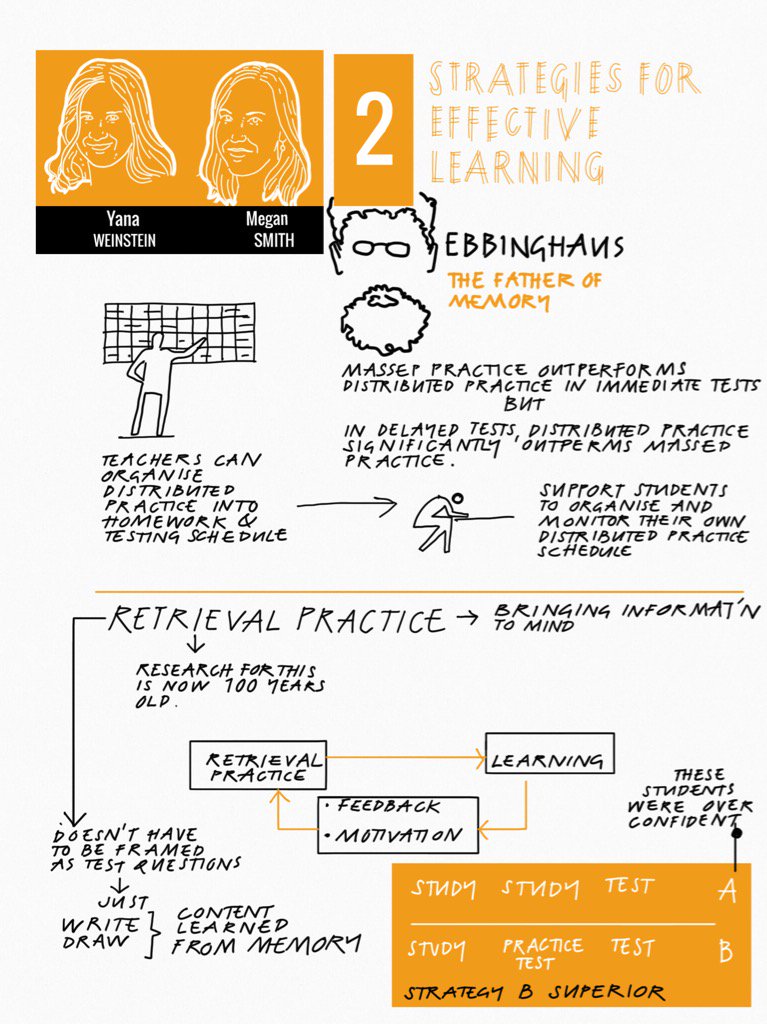 Yana
WEINSTEIN
Megan
SMITH
2
STRATEGIES FOR
EFFECTIVE
LEARNING
EBBINGHAUS
THE FATHER OF
MEMORY
MASSEP PRACTICE OUTPERFORMS
DISTRIBUTED PRACTICE IN IMMEDIATE TESTS
BUT
IN DELAYED TESTS, DISTRIBUTED PRACTICE
SIGNIFICANTLY OUTPERMS MASSED
PRACTICE.
TEACHERS CAN
ORGANISE
DISTRIBUTED
PRACTICE INTO
HOMEWORK &
TESTING SCHEDULE
SUPPORT STUDENTS
TO ORGANISE AND
MONITOR THEIR OWN
DISTRIBUTED PRACTICE
SCHEDULE
RETRIEVAL PRACTICE → BRINGING INFORMAT'N
TO MIND
RESEARCH FOR THIS
IS NOW 100 YEARS
OLD.
RETRIEVAL
PRACTICE
LEARNING
• FEEDBACK
• MOTIVATION
THESE
STUDENTS
WERE OVER
CONFIDENT
DOESN'T HAVE
TO BE FRAMED
AS TEST QUESTIONS
JUST
WRITE
DRAW
CONTENT
LEARNED
FROM MEMORY
STUDY STUDY TEST A
STUDY PRACTICE TEST TEST B
STRATEGY B SUPERIOR